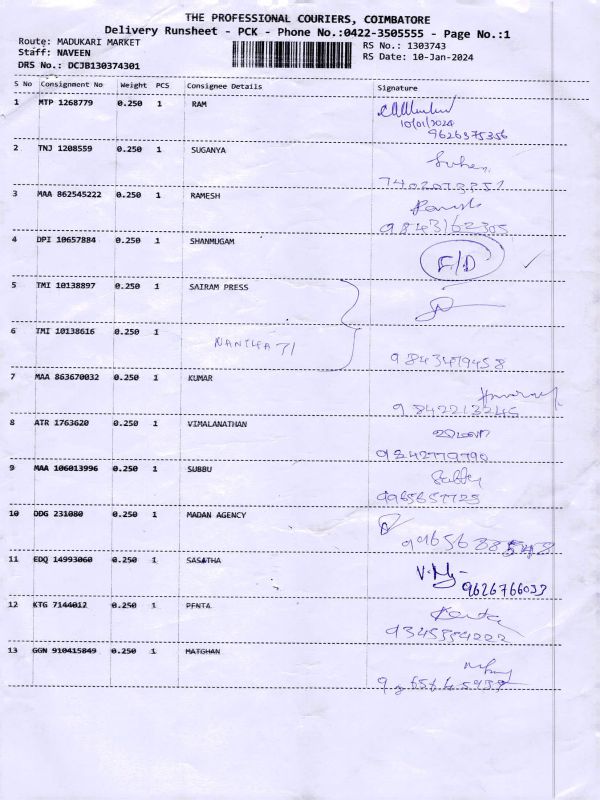 THE PROFESSIONAL COURIERS, COIMBATORE
Delivery Runsheet - PCK - Phone No.:0422-3505555 - Page No.:1
Route: MADUKARI MARKET RS No.: 1303743
Staff: NAVEEN RS Date: 10-Jan-2024
DRS No.: DCJB130374301
S No Consignment No Weight PCS Consignee Details Signature
1 MTP 1268779 0.250 1 RAM
10/01/2024
9626375356
2 TNJ 1208559 0.250 1 SUGANYA
3 MAA 862545222 0.250 1 RAMESH
9843162305
4 DPI 10657884 0.250 1 SHANMUGAM
F/D
5 TMI 10138897 0.250 1 SAIRAM PRESS
6 TMI 10138616 0.250 1
9843479458
7 MAA 863670032 0.250 1 KUMAR
9842213246
8 ATR 1763620 0.250 1 VIMALANATHAN
9 MAA 106013996 0.250 1 SUBBU
Subbu
9965657725
10 DDG 231080 0.250 1 MADAN AGENCY
11 EDQ 14993060 0.250 1 SASATHA
9626766033
12 KTG 7144012 0.250 1 PENTA
9345354222
13 GGN 910415849 0.250 1 MATGHAN